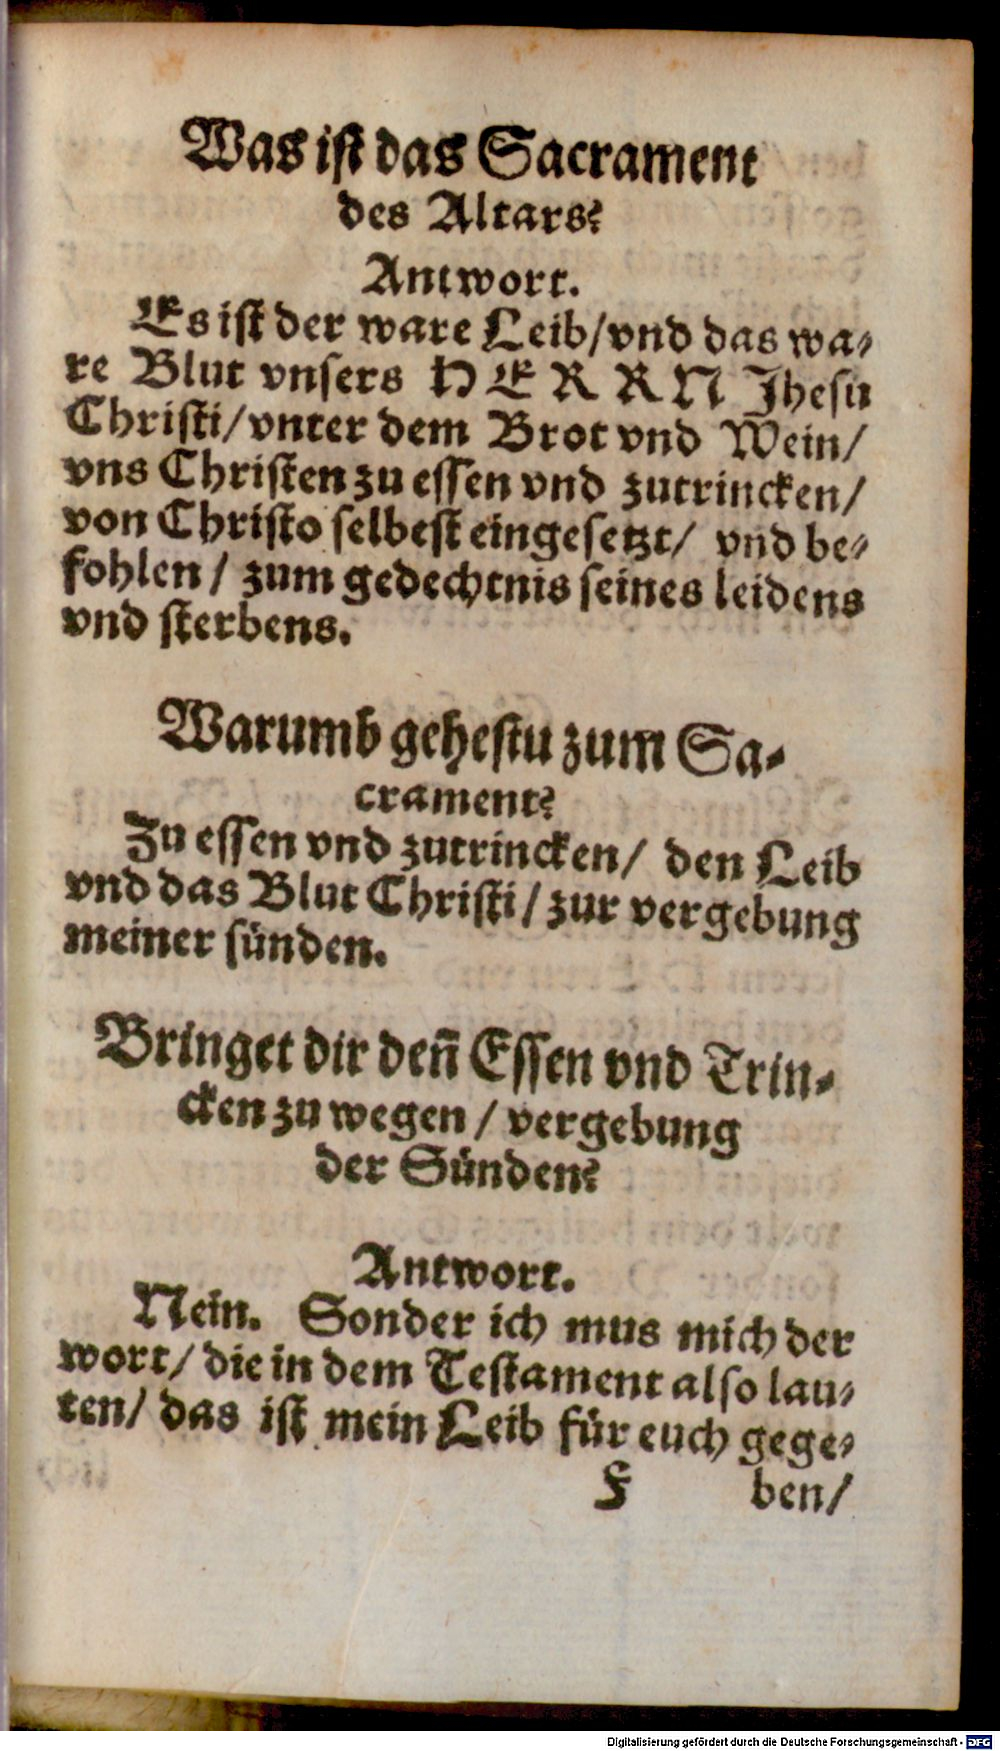 Was ist das Sacrament
des Altars?
Antwort.
Es ist der ware Leib/vnd das wa-
re Blut vnsers HERRN Jhesu
Christi/vnter dem Brot vnd Wein/
vns Christen zu essen vnd zutrincken/
von Christo selbest eingesetzt/ vnd be-
fohlen/ zum gedechtnis seines leidens
vnd sterbens.
Warumb gehestu zum Sa-
crament?
Zu essen vnd zutrincken/ den Leib
vnd das Blut Christi/ zur vergebung
meiner sünden.
Bringet dir deñ Essen vnd Trin-
cken zu wegen/ vergebung
der Sünden?
Antwort.
Nein. Sonder ich mus mich der
wort/ die in dem Testament also lau-
ten/ das ist mein Leib für euch gege-
F ben/
Digitalisierung gefördert durch die Deutsche Forschungsgemeinschaft - DFG